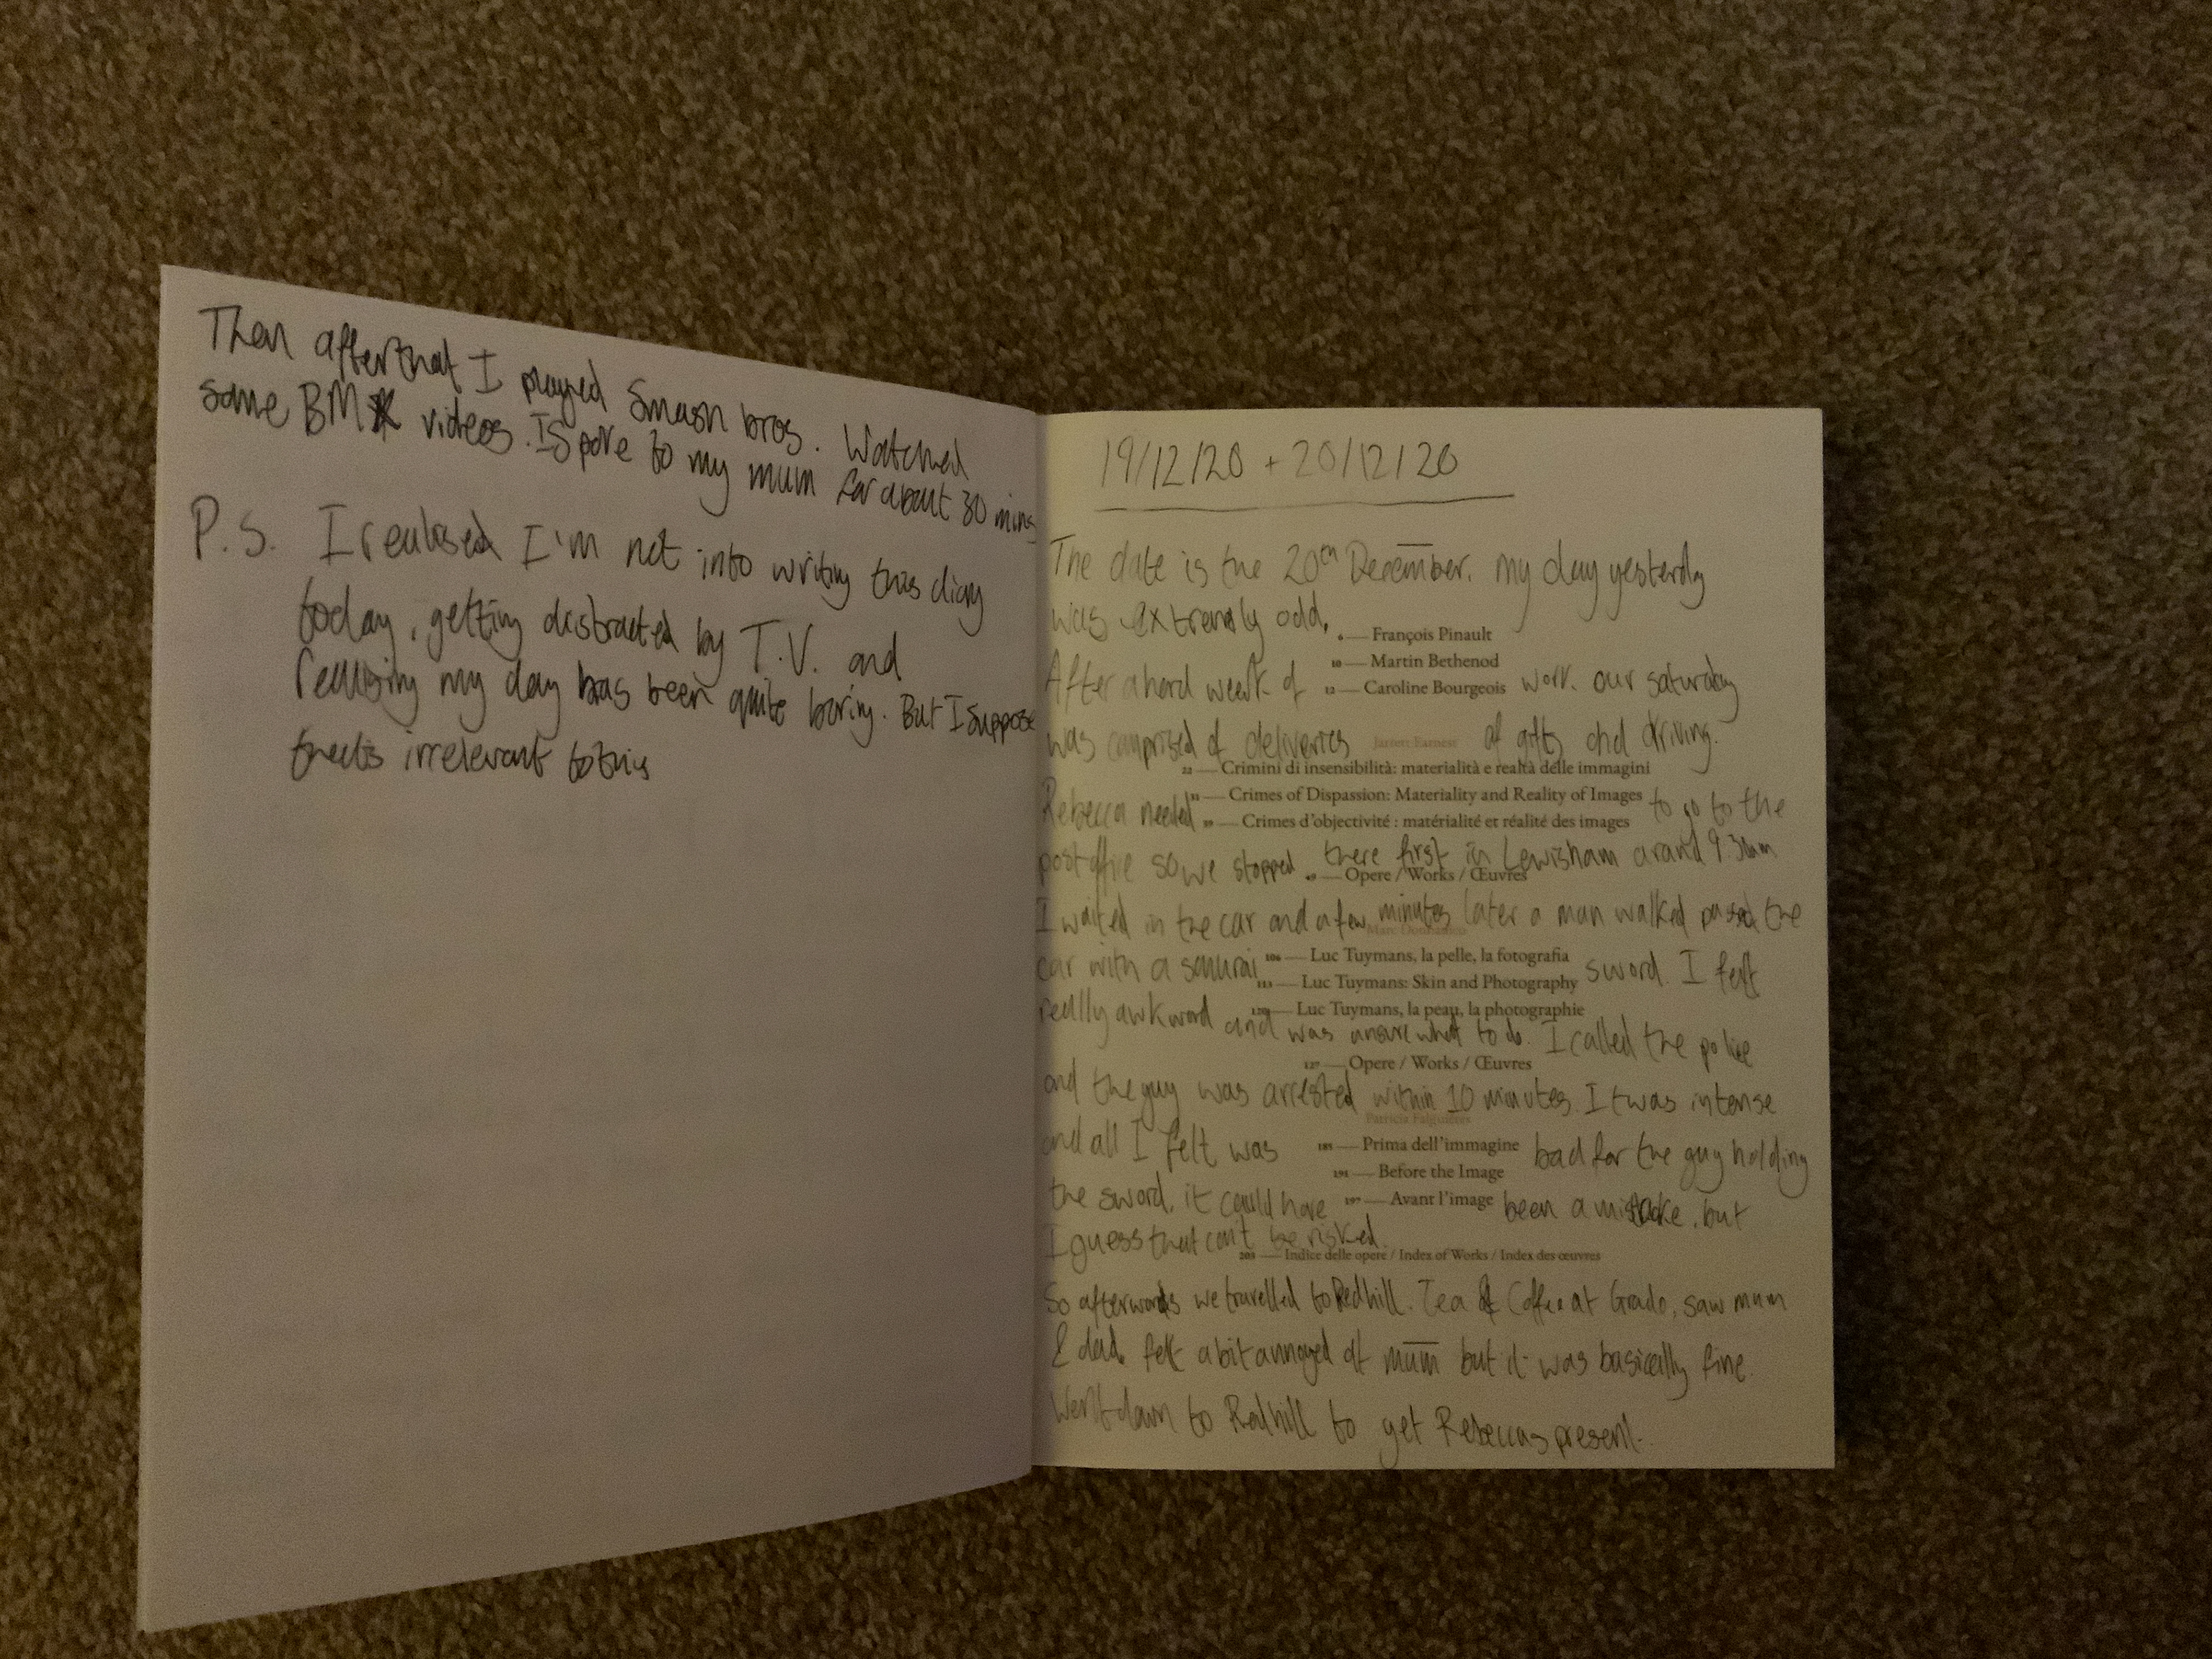 Then after that I played Smash bros. Watched
some BMX videos. I Spoke to my mum for about 30 mins
P.S. I realised I'm not into writing this diary
today, getting distracted by T.V. and
realising my day has been quite boring. But I suppose
thats irrelevant to this
19/12/20 + 20/12/20
The date is the 20th December. my day yesterdy
was extremely odd.
6 — François Pinault
10 — Martin Bethenod
After a hard week of 12 — Caroline Bourgeois work. our saturday
was comprised of deliveries Jarrett Earnest of gifts and driving.
22 — Crimini di insensibilità: materialità e realtà delle immagini
31 — Crimes of Dispassion: Materiality and Reality of Images
Rebecca needed to go to the
39 — Crimes d'objectivité : matérialité et réalité des images
post office so we stopped there first in Lewisham around 9.30am
— Opere / Works / Œuvres
I waited in the car and a few minutes later a man walked passed the
Marc Donnadieu
106 — Luc Tuymans, la pelle, la fotografia
car with a samurai sword. I felt
113 — Luc Tuymans: Skin and Photography
120 — Luc Tuymans, la peau, la photographie
really awkward and was unsure what to do. I called the police
127 — Opere / Works / Œuvres
and the guy was arrested within 10 minutes. It was intense
Patricia Falguières
and all I felt was 185 — Prima dell'immagine bad for the guy holding
191 — Before the Image
the sword, it could have 197 — Avant l'image been a mistake, but
I guess that can't be risked.
203 — Indice delle opere / Index of Works / Index des œuvres
So afterwards we travelled to Redhill. Tea & Coffee at Grado, saw mum
& dad. felt a bit annoyed at mum but it was basically fine.
Went down to Redhill to get Rebeccas present.